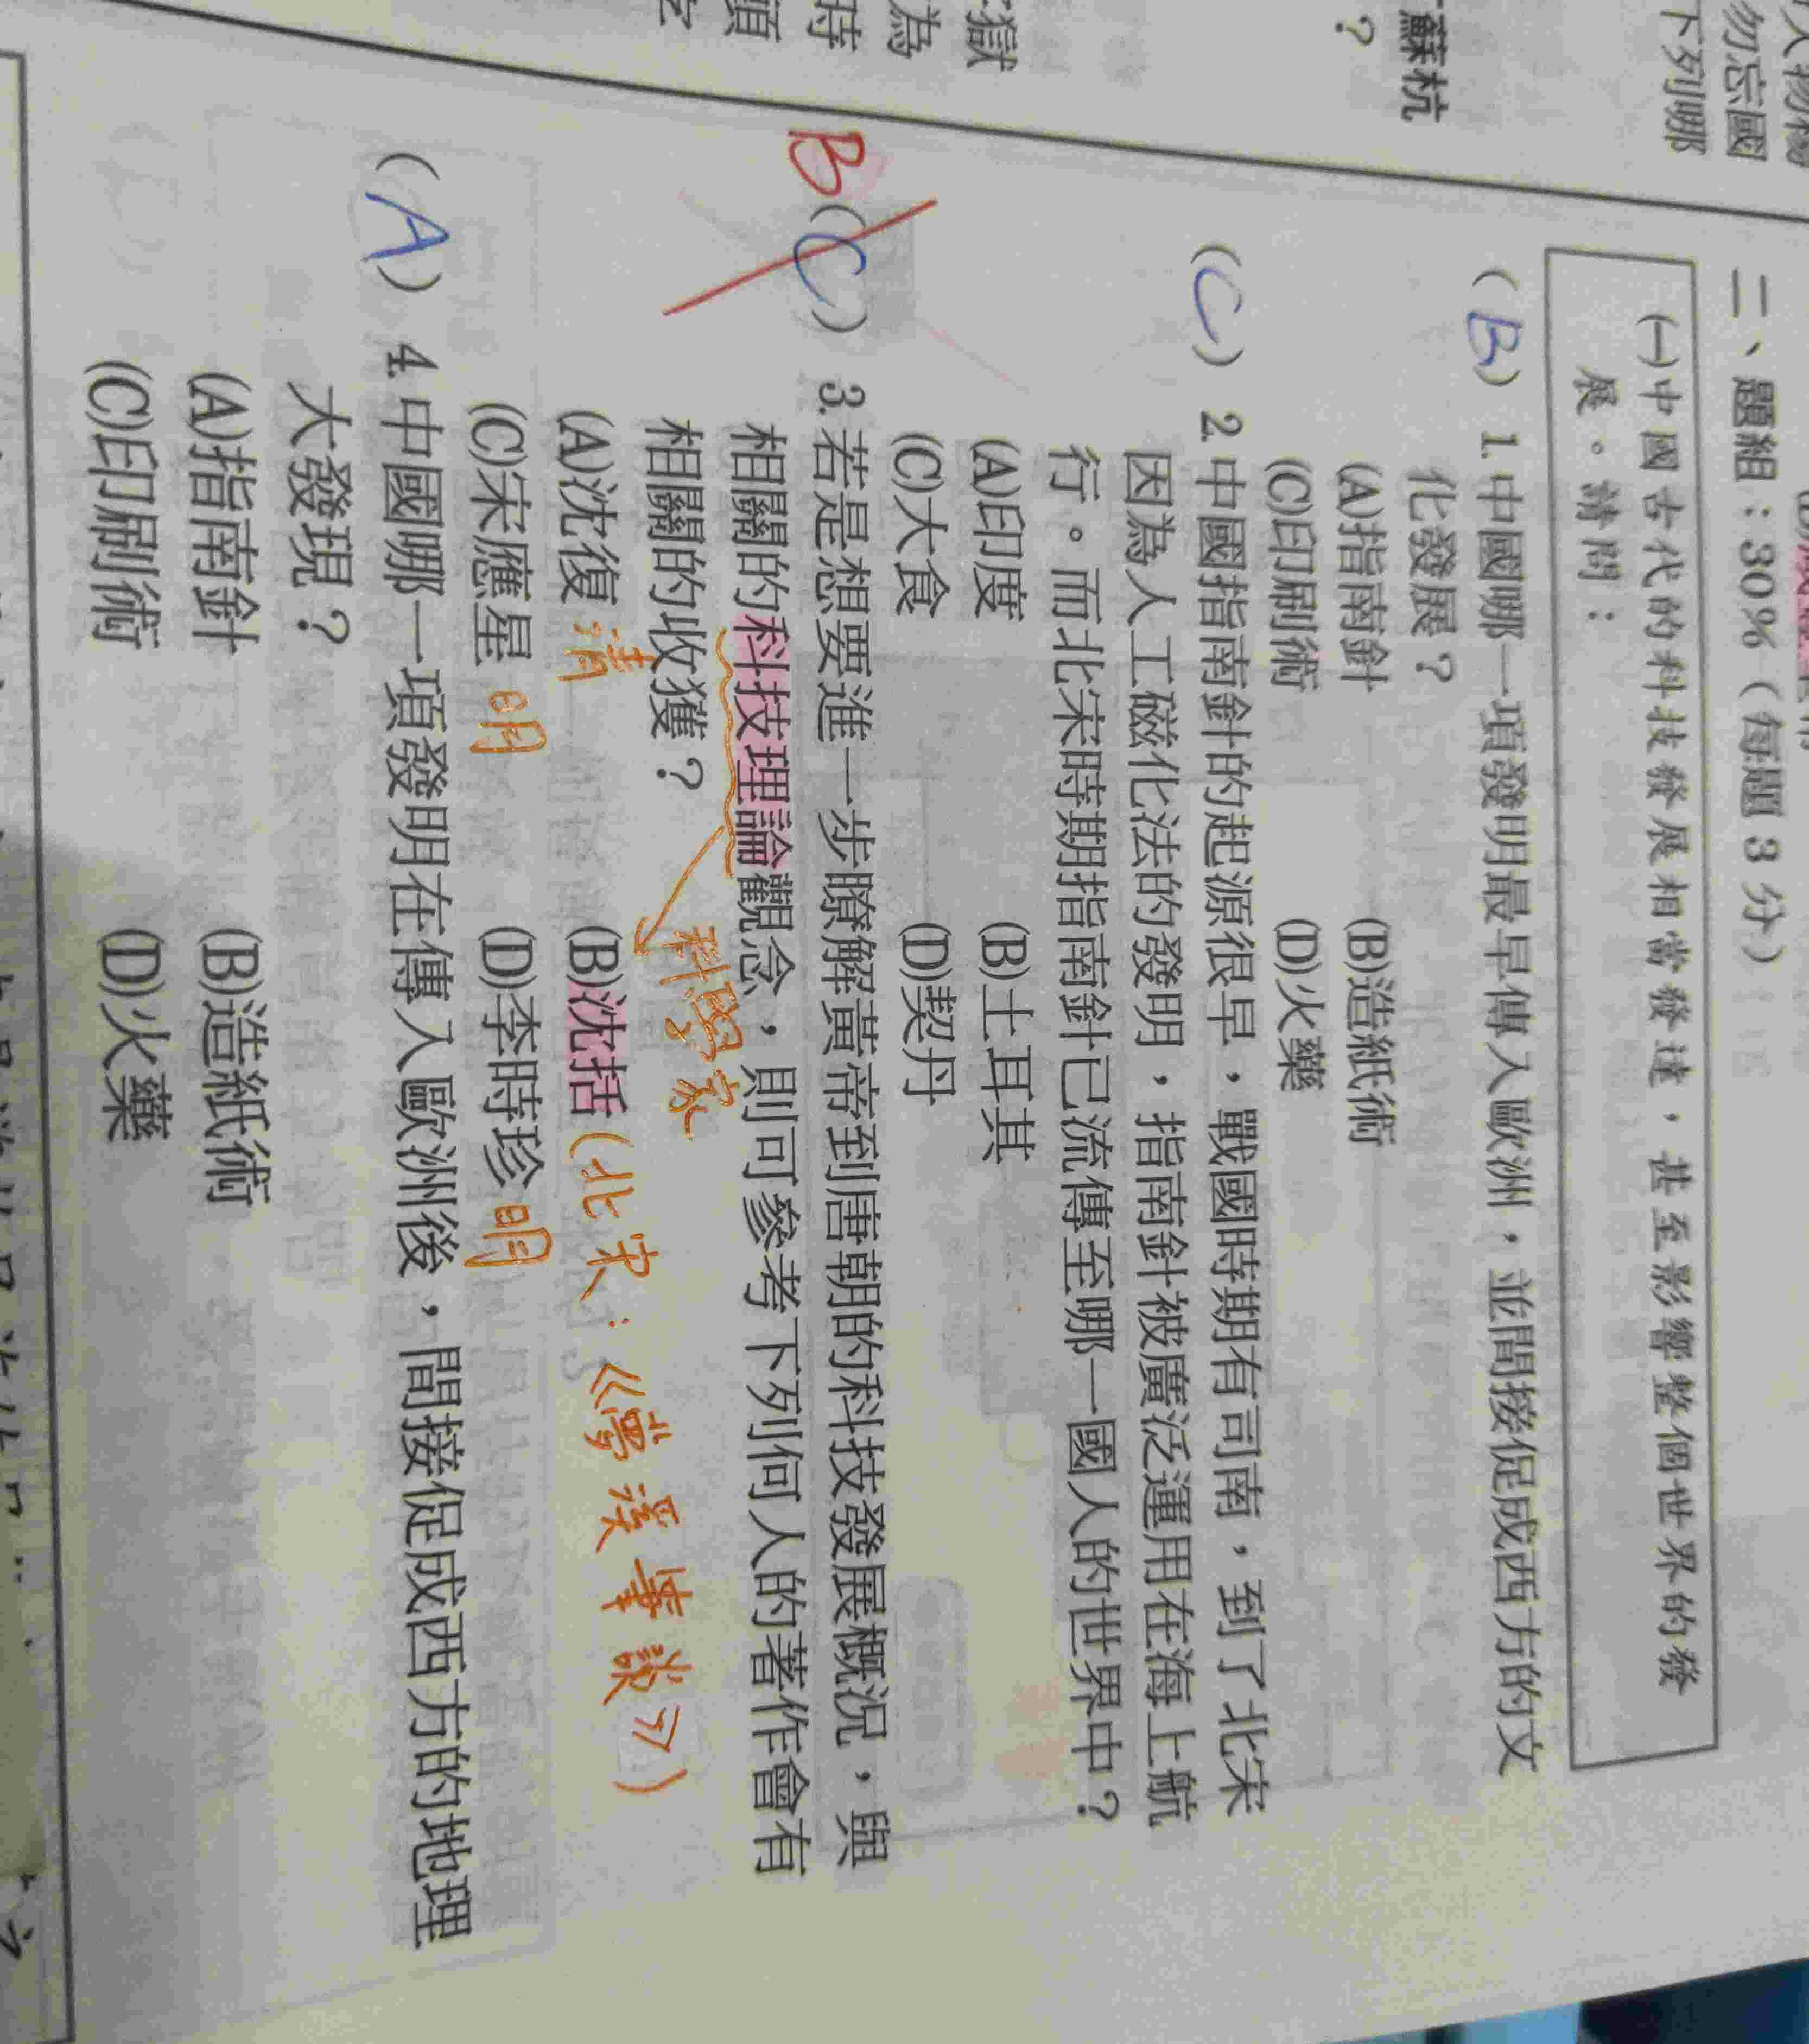 蘇杭
？
勿忘國
下列哪
獄
為
時
頭
二、題組：30%（每題 3 分）
㈠中國古代的科技發展相當發達，甚至影響整個世界的發
展。請問：
(B) 1. 中國哪一項發明最早傳入歐洲，並間接促成西方的文
化發展？
(A)指南針 (B)造紙術
(C)印刷術 (D)火藥
(C) 2. 中國指南針的起源很早，戰國時期有司南，到了北宋
因為人工磁化法的發明，指南針被廣泛運用在海上航
行。而北宋時期指南針已流傳至哪一國人的世界中？
(A)印度 (B)土耳其
(C)大食 (D)契丹
B (C) 3. 若是想要進一步瞭解黃帝到唐朝的科技發展概況，與
相關的科技理論觀念，則可參考下列何人的著作會有
相關的收獲？ 科學家
(A)沈復 清 (B)沈括（北宋：《夢溪筆談》）
(C)宋應星 明 (D)李時珍 明
(A) 4. 中國哪一項發明在傳入歐洲後，間接促成西方的地理
大發現？
(A)指南針 (B)造紙術
(C)印刷術 (D)火藥